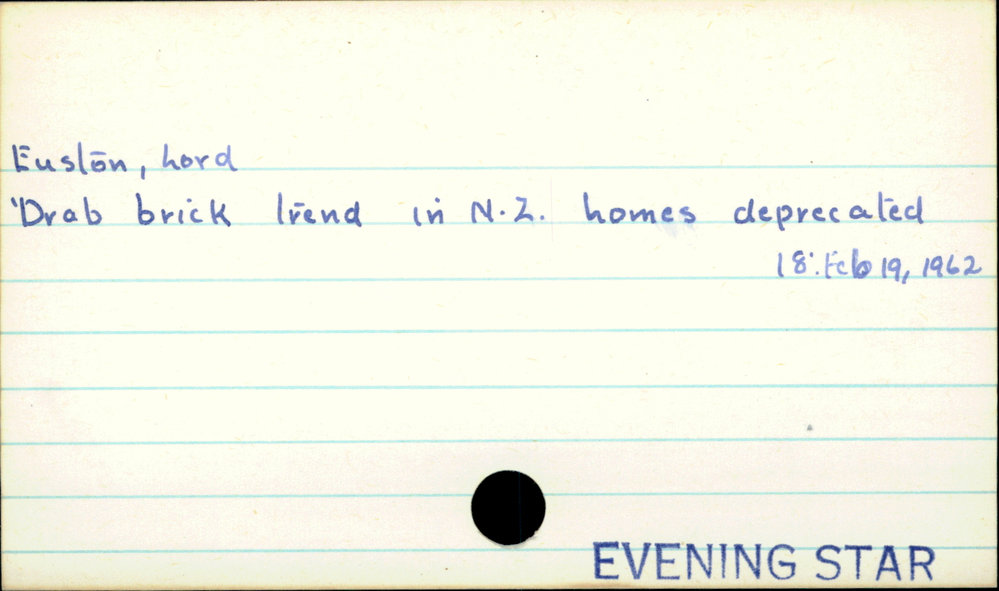 Euston, Lord
'Drab brick trend in N.Z. homes deprecated
18: Feb 19, 1962
EVENING STAR